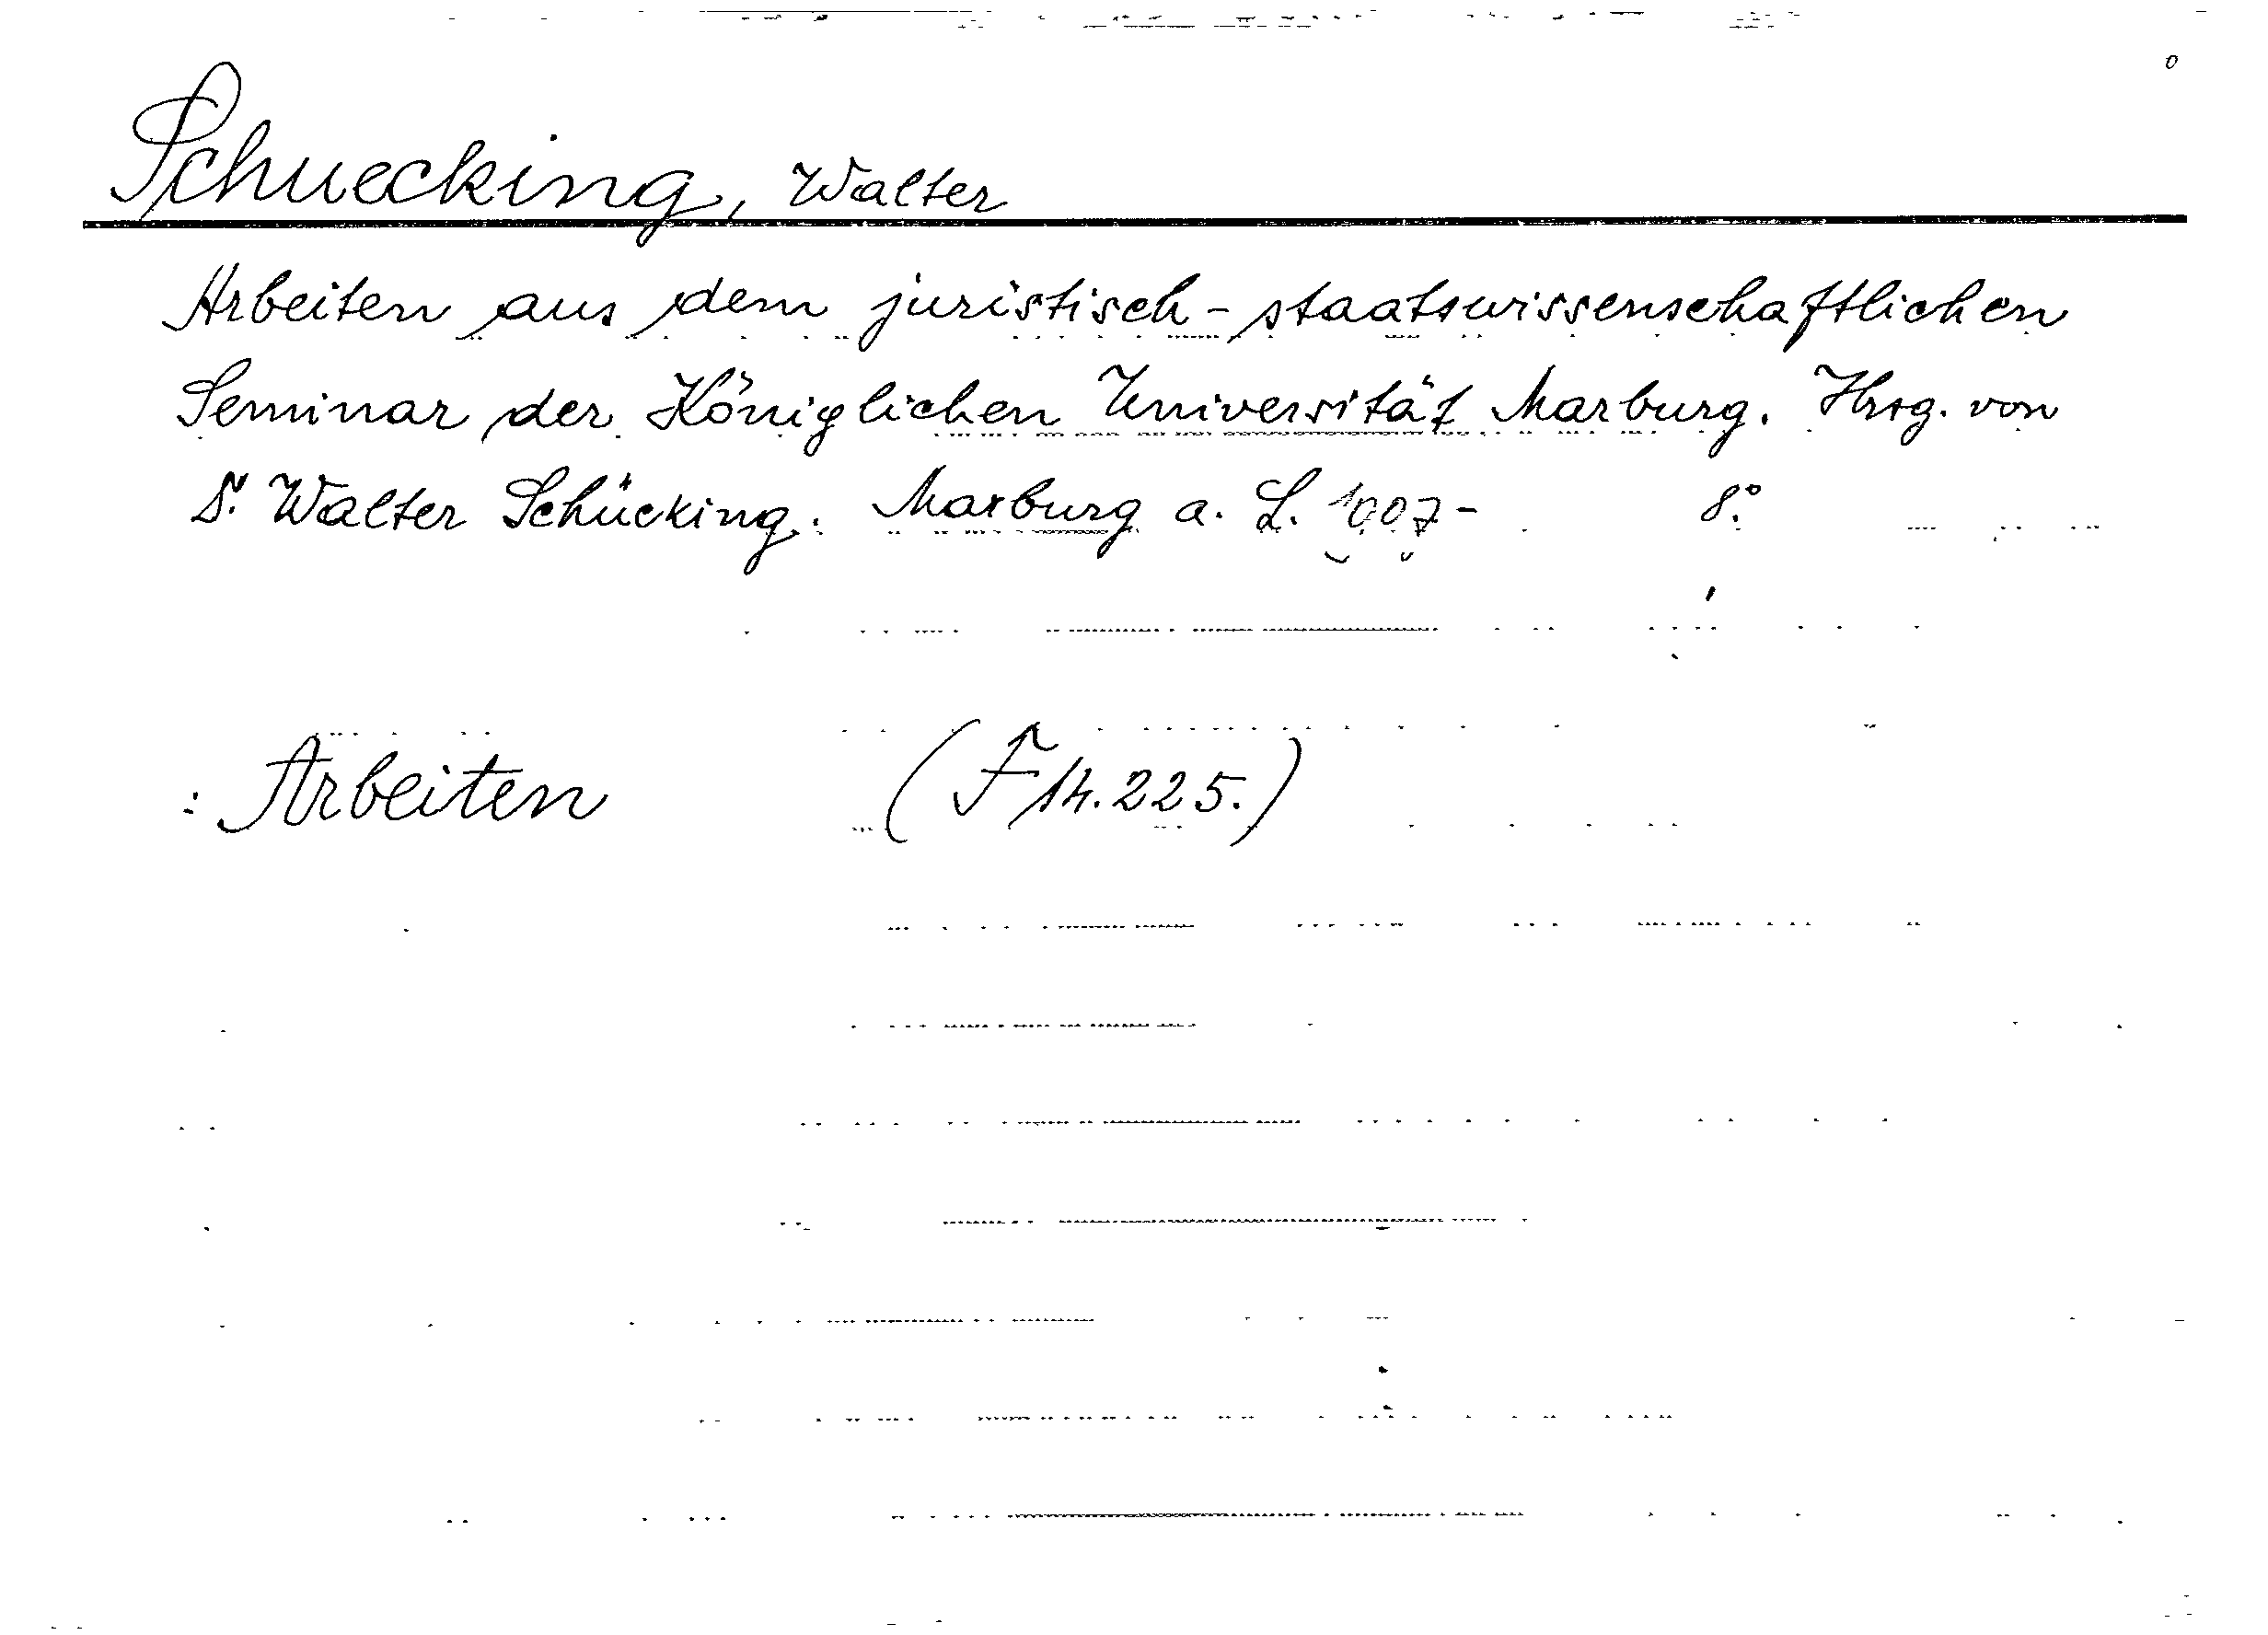 Schuecking, Walter
Arbeiten aus dem juristisch-staatswissenschaftlichen
Seminar der Königlichen Universität Marburg. Hrsg. von
Dr. Walter Schücking. Marburg a. L. 1907- 8°.
: Arbeiten (F 14.225.)